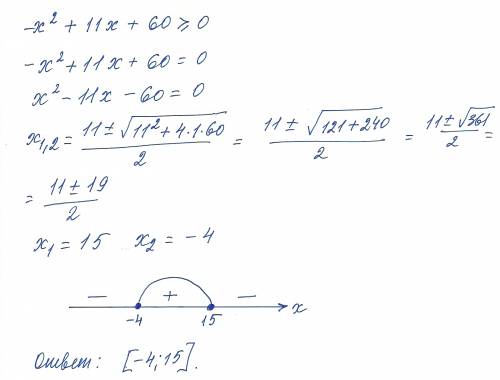 -x² + 11x + 60 ≥ 0
-x² + 11x + 60 = 0
x² - 11x - 60 = 0
x₁,₂ = (11 ± √(11² + 4·1·60))/2 = (11 ± √(121 + 240))/2 = (11 ± √361)/2 =
= (11 ± 19)/2
x₁ = 15 x₂ = -4
- + - x
-4 15
Ответ: [-4; 15].